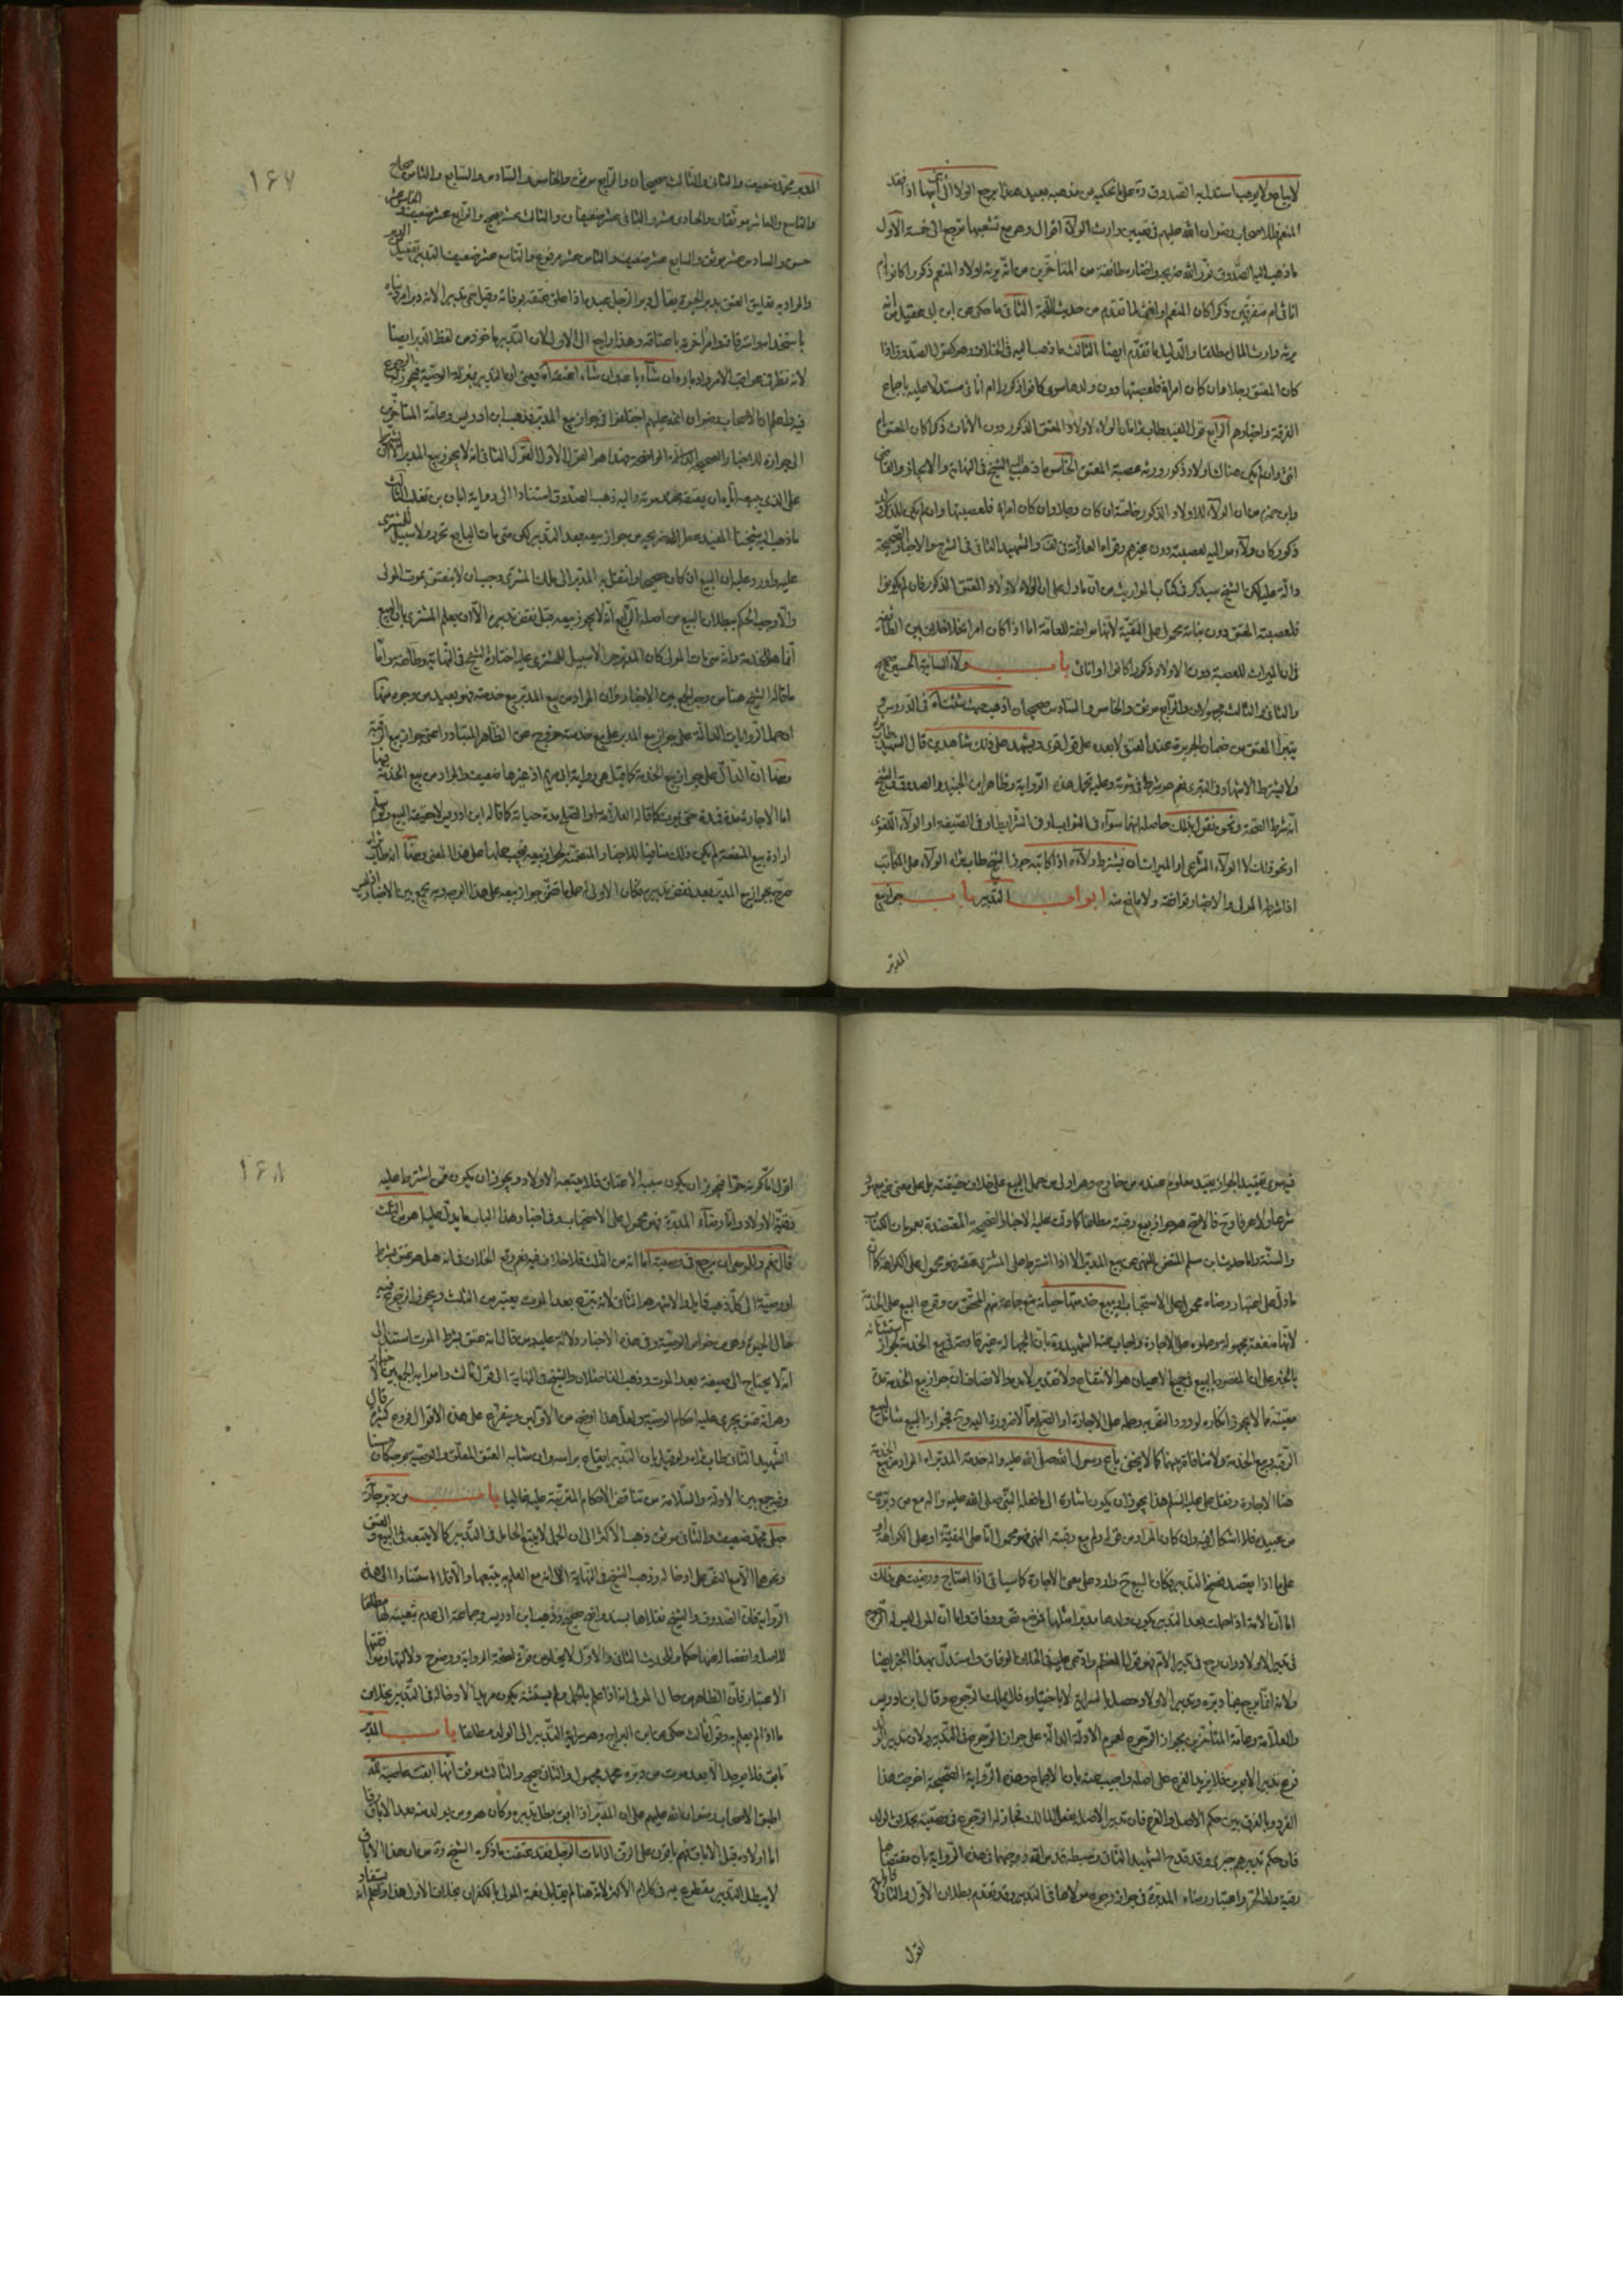 لا يباع ولا يوهب استدل به الصدوق ره على ما نحكيه من مذهبه بعيد هذا يرجع الولاء الى
المنعم للاصحاب رضوان الله عليهم في تعيين وارث الولاء اقوال وهي مع تشعبها ترجع الى خمسة الاول
ما ذهب اليه الصدوق نور الله ضريحه واختاره طائفة من المتأخرين من انه يرثه اولاد المنعم ذكورا كانوا ام
اناثا ام متفرقين ذكرا كان المنعم او انثى لما تقدم من حديث اللحمة الثاني ما حكي عن ابن ابي عقيل من انه
يرثه وارث المال مطلقا والدليل ما تقدم ايضا الثالث ما ذهب اليه في الخلاف وهو كقول الصدوق اذا
كان المعتق رجلا فان كان امراة فلعصبتها دون ولدها سوى كانوا ذكورا ام اناثا مستدلا عليه باجماع
الفرقة واخبارهم الرابع قول المفيد طاب ثراه ان الولاء لاولاد المعتق الذكور دون الاناث ذكرا كان المعتق ام
انثى وان لم يكن هناك اولاد ذكور ورثه عصبة المعتق الخامس ما ذهب اليه الشيخ في النهاية والايجاز والقاضي
وابن حمزة من ان الولاء للاولاد الذكور خاصة ان كان رجلا وان كان امراة فلعصبتها وان لم يكن للذكر
ذكور كان ولاء مواليه لعصبته دون غيرهم وقواه العلامة في لف والشهيد الثاني في الشرح والاخبار الصحيحة
دالة عليه لكن الشيخ سيذكر في كتاب المواريث من ان ما دل على ان الولاء لاولاد المعتق الذكور فان لم يكونوا
فلعصبته المعتق دون بناته محمول على التقية لانها موافقة للعامة اما اذا كان امراة فلا خلاف بين الطائفة
في ان الميراث للعصبة دون الاولاد ذكورا كانوا او اناثا باب ولاء السائبة الحسن صحيح
والثاني والثالث مجهولان والرابع موثق والخامس والسادس صحيحان اذهب حيث شئت اه في الدروس
يتبرأ المعتق من ضمان الجريرة عند العتق لا بعده على قول قوي ويشهد على ذلك شاهدين قال الشهيد
ولا يشترط الاشهاد في التبري نعم هو شرط في ثبوته وعليه تحمل هذه الرواية وظاهر ابن الجنيد والصدوق والشيخ
انه شرط الصحة
او نحو ذلك لا الولاء الشرعي او الميراث
اذا شرط المولى والاخبار توافقه ولا مانع منه ابواب التدبير باب جواز بيع
المدبر
۱۶۷
المدبر محمد ضعيف والثاني والثالث صحيحان والرابع موثق والخامس والسادس والسابع والثامن صحاح
والتاسع والعاشر موثقان والحادي عشر والثاني عشر ضعيفان والثالث عشر صحيح والرابع عشر ضعيف
حسن والسادس عشر موثق والسابع عشر ضعيف والثامن عشر مرفوع والتاسع عشر ضعيف التدبير تفعيل
والمراد به تعليق العتق بدبر الحيوة يقال دبر الرجل عبده اذا علق عتقه بوفاته وقيل سمي تدبيرا لانه دبر امر دنياه
باستخدامه واسترقاقه وامر اخرته باعتاقه وهذا راجع الى الاول لان التدبير مأخوذ من لفظ الدبر ايضا
لانه نظر في عواقب الامور وادبارها ان شاء باعه وان شاء اعتقه اه يعني ان التدبير بمنزلة الوصية فيجوز له الرجوع
فيه واعلم ان الاصحاب رضوان الله عليهم اختلفوا في جواز بيع المدبر فذهب ابن ادريس وعامة المتأخرين
الى جوازه للاخبار الصحيحة الدالة الواضحة وهذا هو القول الاول القول الثاني انه لا يجوز بيع المدبر الا ان يشترط
على الذي يبيعه اياه ان يعتقه عند موته واليه ذهب الصدوق استنادا الى رواية ابان بن تغلب الثالث
ما ذهب اليه شيخنا المفيد عطر الله ضريحه من جواز بيعه بعد التدبير لكن متى مات البايع تحرر ولا سبيل للمشتري
عليه واورد عليه ان البيع ان كان صحيحا وانتقل به المدبر الى ملك المشتري وجب ان لا ينعتق بموت المولى
والا وجب الحكم ببطلان البيع من اصله الرابع انه لا يجوز بيعه قبل نقض تدبيره الا ان يعلم المشتري بان البيع
انما هو للخدمة وانه متى مات المولى كان المدبر حرا لا سبيل للمشتري عليه اختاره الشيخ في النهاية وطائفة واما
ما قاله الشيخ هنا من وجه الجمع بين الاخبار وان المراد من بيع المدبر بيع خدمته فهو بعيد من وجوه منها
ان حمل الروايات الدالة على جواز بيع المدبر على بيع خدمته خروج عن الظاهر المتبادر اعني جواز بيع الرقبة
ومنها ان الدال على جواز بيع الخدمة كما قيل هي رواية ابي مريم اذ غيرها ضعيف والمراد من بيع الخدمة فيها
اما الاجارة مدة فمدة حتى يموت كما قاله العلامة او الصلح مدة حياته كما قاله ابن ادريس لا حقيقة البيع ولو سلم
ارادة بيع المنفعة لم يكن ذلك منافيا للاخبار المتضمنة لجواز بيعه فيجب حملها على هذا المعنى ومنها انه طاب ثراه
صرح بجواز بيع المدبر بعد نقض تدبيره فكان الاولى حمل ما تضمن جواز بيعه على هذا الوجه وبه يجمع بين الاخبار اذ ليس
فيه سوى تقييد الجواز بقيد معلوم عنده من خارج وهو اولى من حمل البيع على خلاف حقيقته بل على معنى غير معهود
شرعا ولا عرفا وح فالاصح هو جواز بيع رقبته مطلقا كما دلت عليه الاخبار الصحيحة المعتضدة بعمومات الكتاب
والسنة واما حديث ابن مسلم المتضمن للنهي عن بيع المدبر الا اذا اشترط على المشتري عتقه فهو محمول على الكراهة كما ان
ما دل على اعتبار رضاه محمول على الاستحباب
لانها منفعة مجهولة وحملوه على الاجارة واجاب عنه الشهيد ره بان الجهالة غير قادحة في بيع الخدمة لجواز استثنائه
معينة مما لا يجوز انكاره لورود النص به وحمله على الاجارة او الصلح مما لا ضرورة اليه
الرقبة وبيع الخدمة ولا منافاة بينهما كما لا يخفى باع رسول الله صلى الله عليه واله خدمة المدبر اه المراد من بيع الخدمة
هنا الاجارة ونقل علي عليه السلم هذا يجوز ان يكون اشارة الى ما فعله النبي صلى الله عليه واله مع من دبره من
من عبيده فلا اشكال فيه وان كان المراد من قوله ولم يبع رقبته النهي فهو محمول اما على التقية او على الكراهة او
على ما اذا لم يقصد فسخ التدبير
اما ان الامة اذا حملت بعد التدبير يكون ولدها مدبرا مثلها فموضع نص ووفاق واما ان المولى ليس له الرجوع
في تدبير الاولاد وان رجع في تدبير الام فهو قول المعظم وادعى عليه في الخلاف الوفاق واستدل بهذا الخبر ايضا
ولانه انما يرجع فيما دبره وتدبير الاولاد حصل بالسراية لا باختياره فلا يملك الرجوع وقال ابن ادريس
والعلامة وعامة المتأخرين بجواز الرجوع لعموم الادلة الدالة على جواز الرجوع في التدبير ولان تدبير الولد
فرع تدبير الابوين فلا يزيد الفرع على اصله واجيب عنه بان الاجماع وهذه الرواية الصحيحة اخرجت هذا
الفرد وبالفرق بين حكم الاصل والفرع فان تدبير الاصل بفعل المالك فجاز له الرجوع
فان حكم تدبيرهم جبري وقد قدح الشهيد الثاني
رقية ولد الحر واعتبار رضاء المدبرة في جواز رجوع مولاها في التدبير وقد تقدم بطلان الاول والثاني
اقول
۱۶۸
اقول اما كونه حرا فيجوز ان يكون سببه الاعتاق فلا يتبعه الاولاد ويجوز ان يكون ممن اشترط عليه
رقية الاولاد واما رضاء المدبرة فهو محمول على الاستحباب وفي اخبار هذا الباب ما يدل عليه هو من الثلث
قال نعم وللموصي ان يرجع في وصيته اما انه من الثلث فلا خلاف فيه نعم وقع الخلاف في انه هل هو عتق بشرط
او وصية الى كل ذهب قايل والاشهر هو الثاني لانه تبرع بعد الموت يعتبر من الثلث ويجوز الرجوع فيه
حال الحيوة وهي من خواص الوصية وفي هذه الاخبار دلالة عليه ومن قال انه عتق بشرط الموت استند الى
انه لا يحتاج الى صيغة بعد الموت وذهب الفاضلان والشيخ في النهاية الى قول ثالث
وهو انه عتق يجري عليه احكام الوصية ولعل هذا اوضح من الاولين ويتفرع على هذه الاقوال فروع كثيرة قال
الشهيد الثاني طاب ثراه ولو قيل بان التدبير ايقاع براسه وان شابه العتق المعلق والوصية بوجه كان حسنا
وفيه جمع بين الادلة والسلامة من تناقض الاحكام المترتبة عليه غالبا باب من دبر جارية
حبلى محمد ضعيف والثاني موثق ذهب الاكثر الى ان الحمل لا يتبع الحامل في التدبير كما لا يتبعه في البيع والعتق
ونحوهما الا مع النص على ادخاله وذهب الشيخ في النهاية الى انه مع العلم به يتبعها والا فلا استنادا الى هذه
الرواية فان الصدوق والشيخ نقلاها بسند واضح صحيح وذهب ابن ادريس وجماعة الى عدم تبعيته لها مطلقا
للاصل وانفصاله عنها حكما وللحديث الثاني والاول لا يخلو من قوة لصحة الرواية ووضوح دلالتها وموافقتها
الاعتبار فان الظاهر من حال المولى انه اذا علم بالحمل ولم يستثنه يكون مريدا لادخاله في التدبير بخلاف
ما اذا لم يعلم به وقول ثالث حكي عن ابن البراج وهو سراية التدبير الى الولد مطلقا باب المدبر
يابق فلا يوجد الا بعد موت من دبره محمد مجهول والثاني صحيح والثالث موثق انها ابقت عاصية لله
اطبق الاصحاب رضوان الله عليهم على ان المدبر اذا ابق بطل تدبيره وكان هو ومن يولد منه بعد الاباق رقا
اما اولاده قبل الاباق فهم باقون على الرق اذا مات الرجل فقد عتقت ما ذكره الشيخ ره من ان هذا الاباق
لا يبطل التدبير مقطوع به في كلام الاكثر لانه هنا لم يقابل نعمة المولى بالكفران بخلاف الاول هذا واعلم انه يستفاد